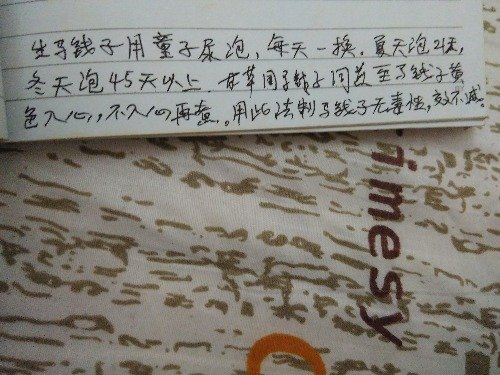 生马钱子用童子尿泡,每天一换.夏天泡
冬天泡45天以上 甘草同马钱子同煮至马钱子黄
色入心,不入心再煮。用此法制马钱子无毒性,效不减。
imesy